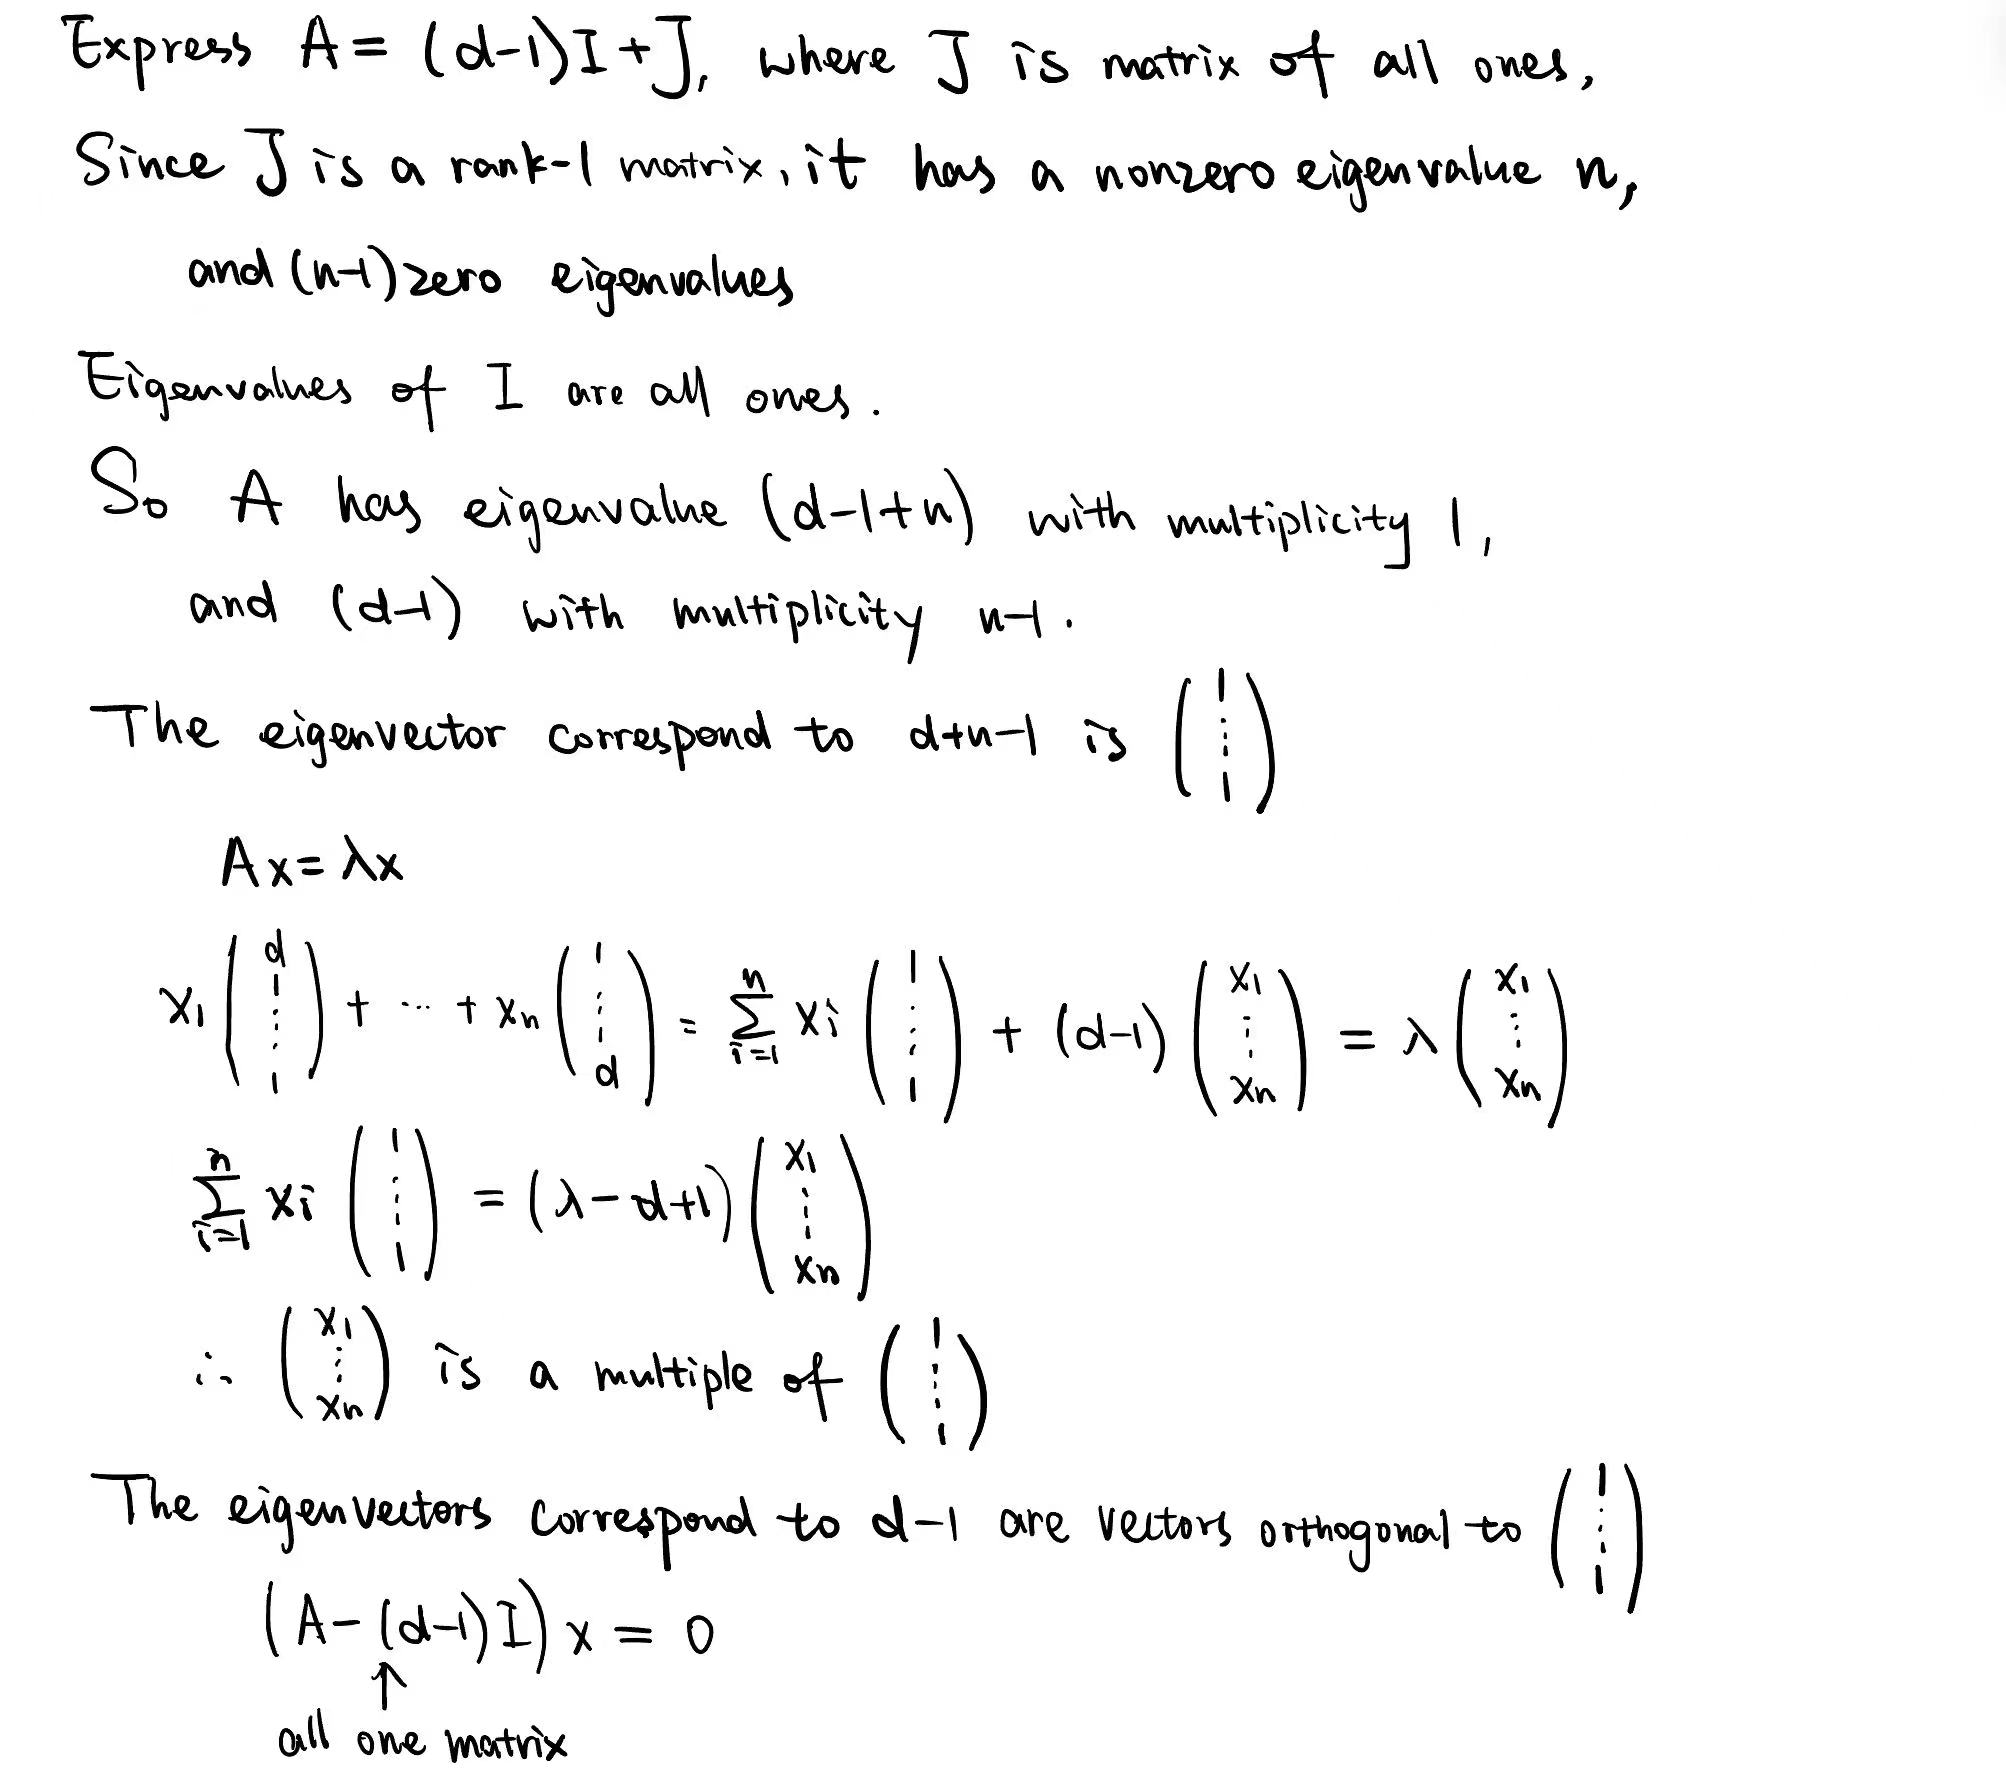 Express A = (d-1)I + J, where J is matrix of all ones,
Since J is a rank-1 matrix, it has a nonzero eigenvalue n,
and (n-1) zero eigenvalues
Eigenvalues of I are all ones.
So A has eigenvalue (d-1+n) with multiplicity 1,
and (d-1) with multiplicity n-1.
The eigenvector correspond to d+n-1 is (1 ⋮ 1)
Ax = λx
x₁ (d 1 ⋮ 1) + ··· + xₙ (1 ⋮ 1 d) = ∑ᵢ₌₁ⁿ xi (1 ⋮ 1) + (d-1) (x₁ ⋮ xₙ) = λ (x₁ ⋮ xₙ)
∑ᵢ₌₁ⁿ xi (1 ⋮ 1) = (λ-d+1) (x₁ ⋮ xₙ)
∴ (x₁ ⋮ xₙ) is a multiple of (1 ⋮ 1)
The eigenvectors correspond to d-1 are vectors orthogonal to (1 ⋮ 1)
(A-(d-1)I) x = 0
↑
all one matrix